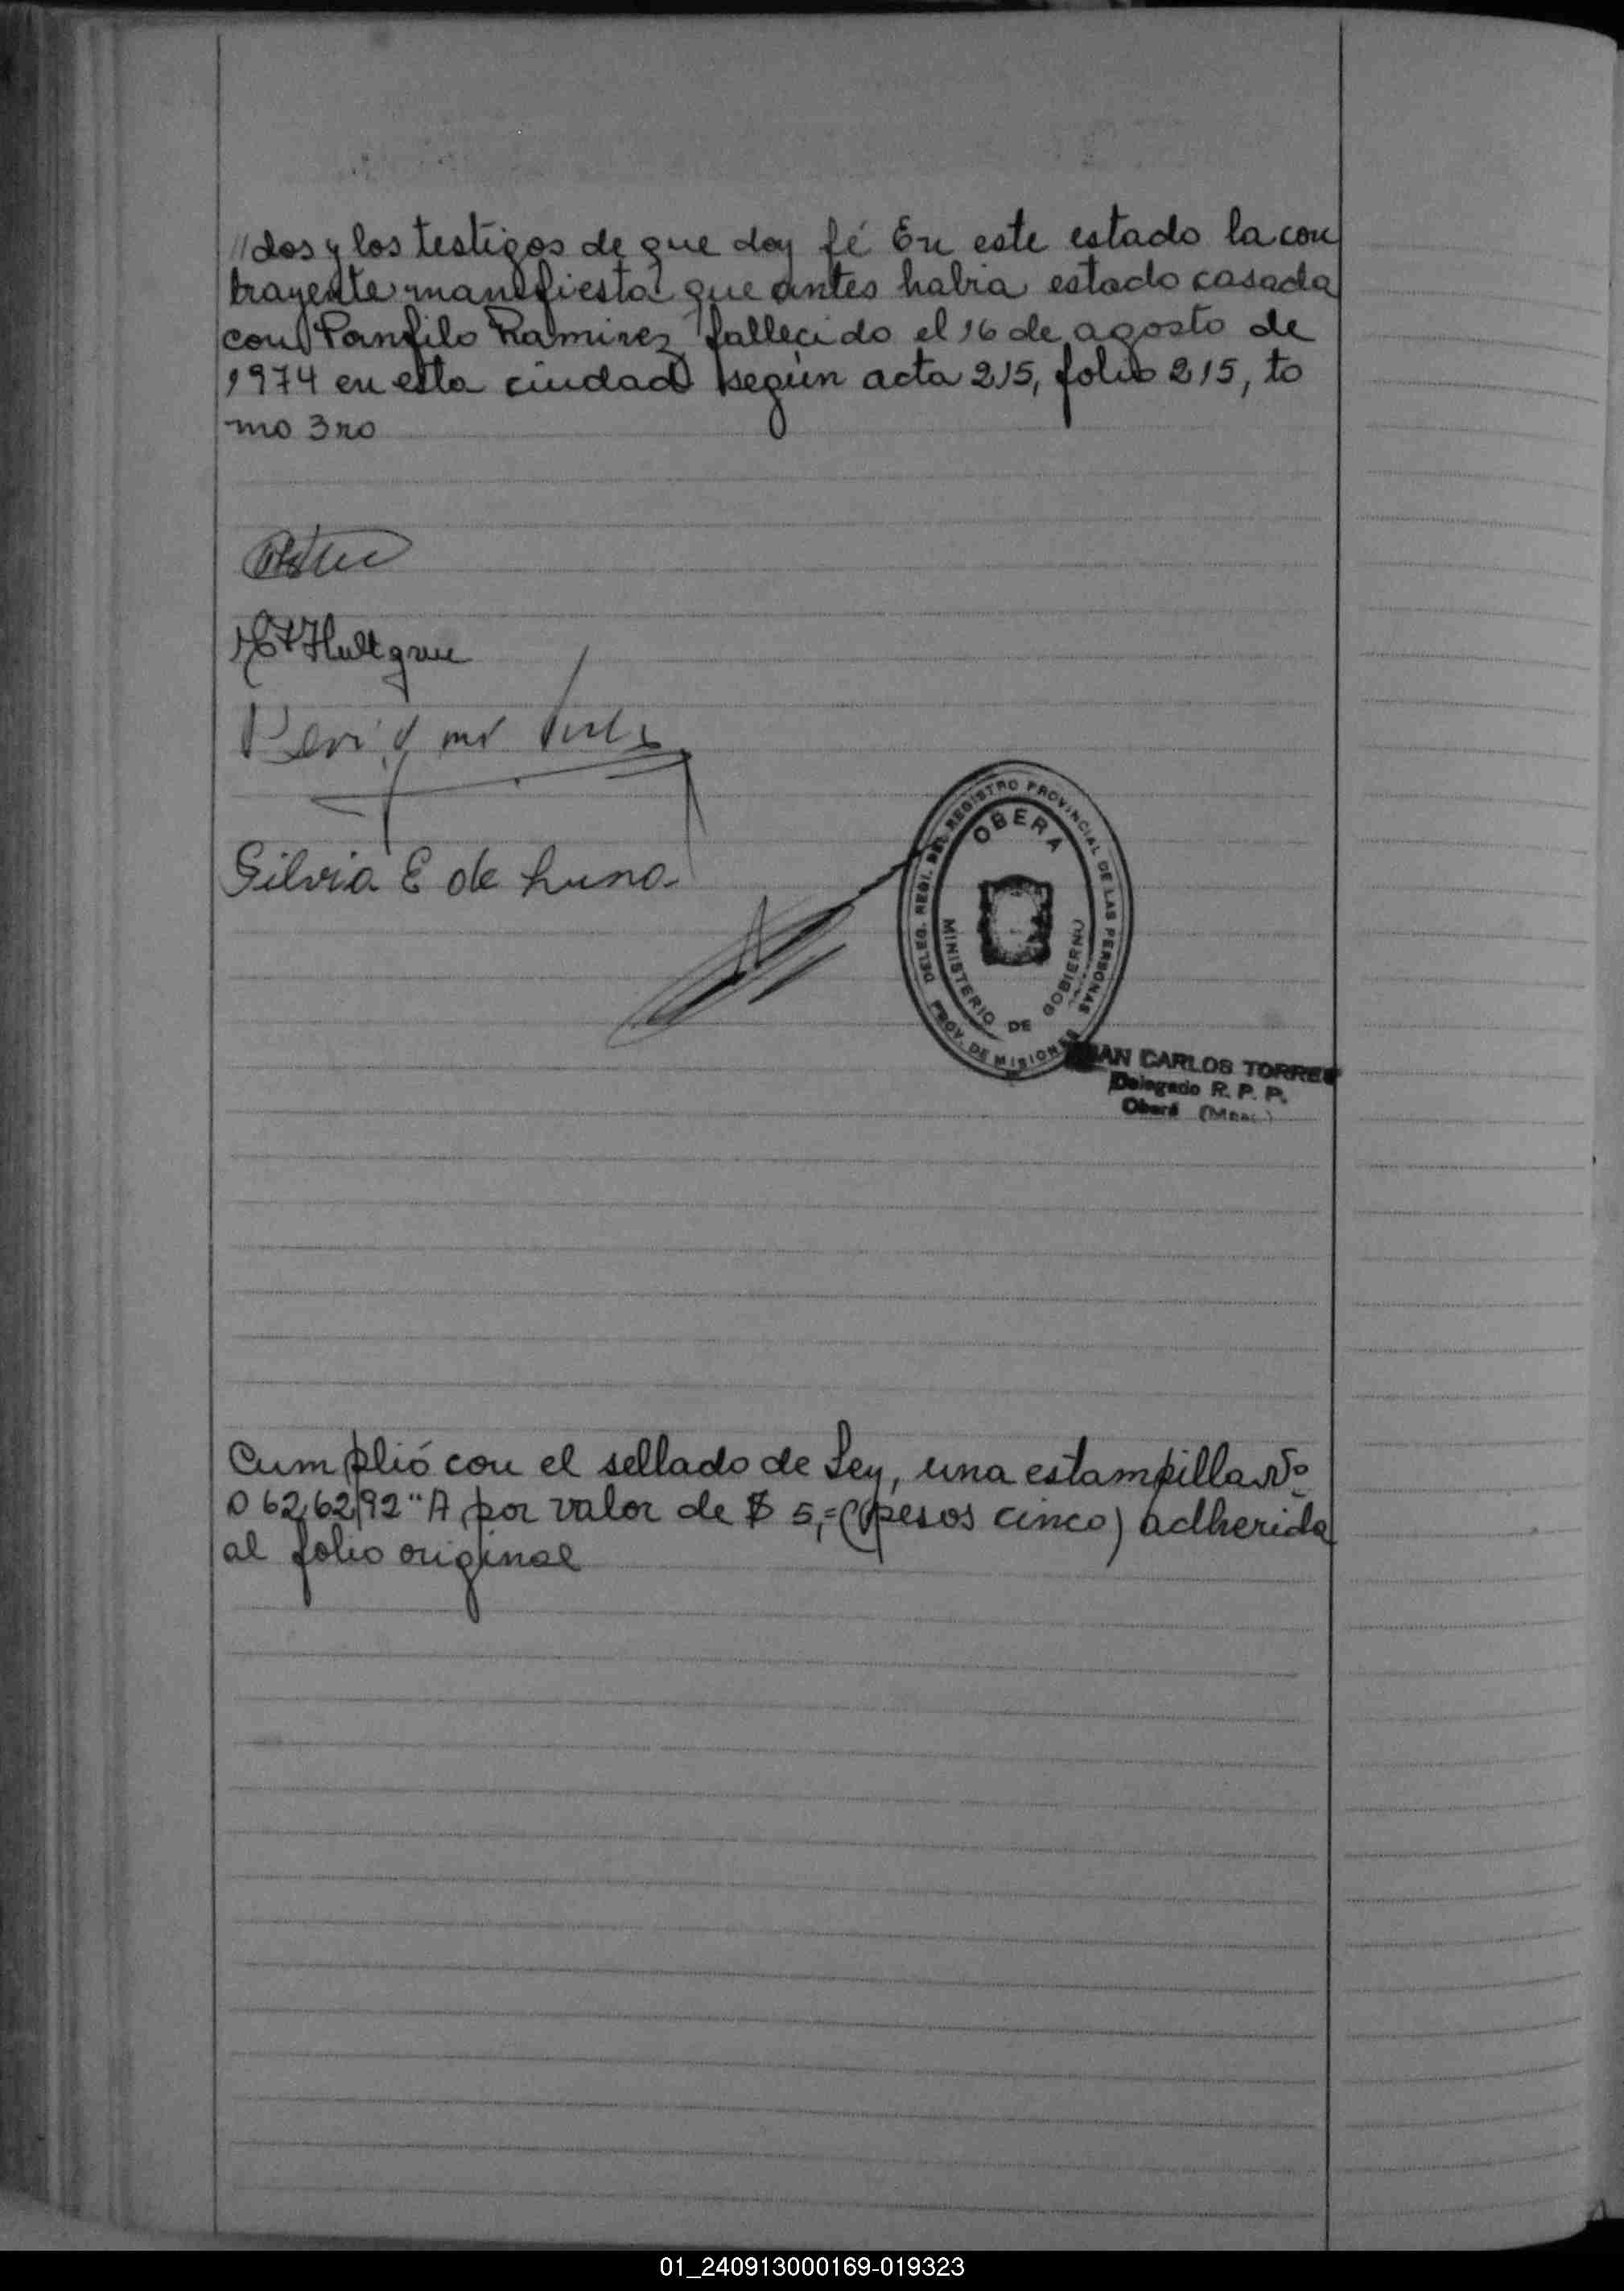 //dos y los testigos de que doy fé En este estado la con
trayente manifiesta que antes habia estado casada
con Panfilo Ramirez fallecido el 16 de agosto de
1974 en esta ciudad según acta 215, folio 215, to
mo 3ro
Hultgren
Silvia E de Luna
DELEG. REGI. DEL REGISTRO PROVINCIAL DE LAS PERSONAS
OBERA
MINISTERIO DE GOBIERNO
PROV. DE MISIONES
JUAN CARLOS TORRES
Delegado R. P. P.
Oberá (Mnes.)
Cumplió con el sellado de Ley, una estampilla Nº
0626292 "A por valor de $ 5,= (pesos cinco) adherida
al folio original
01_240913000169-019323